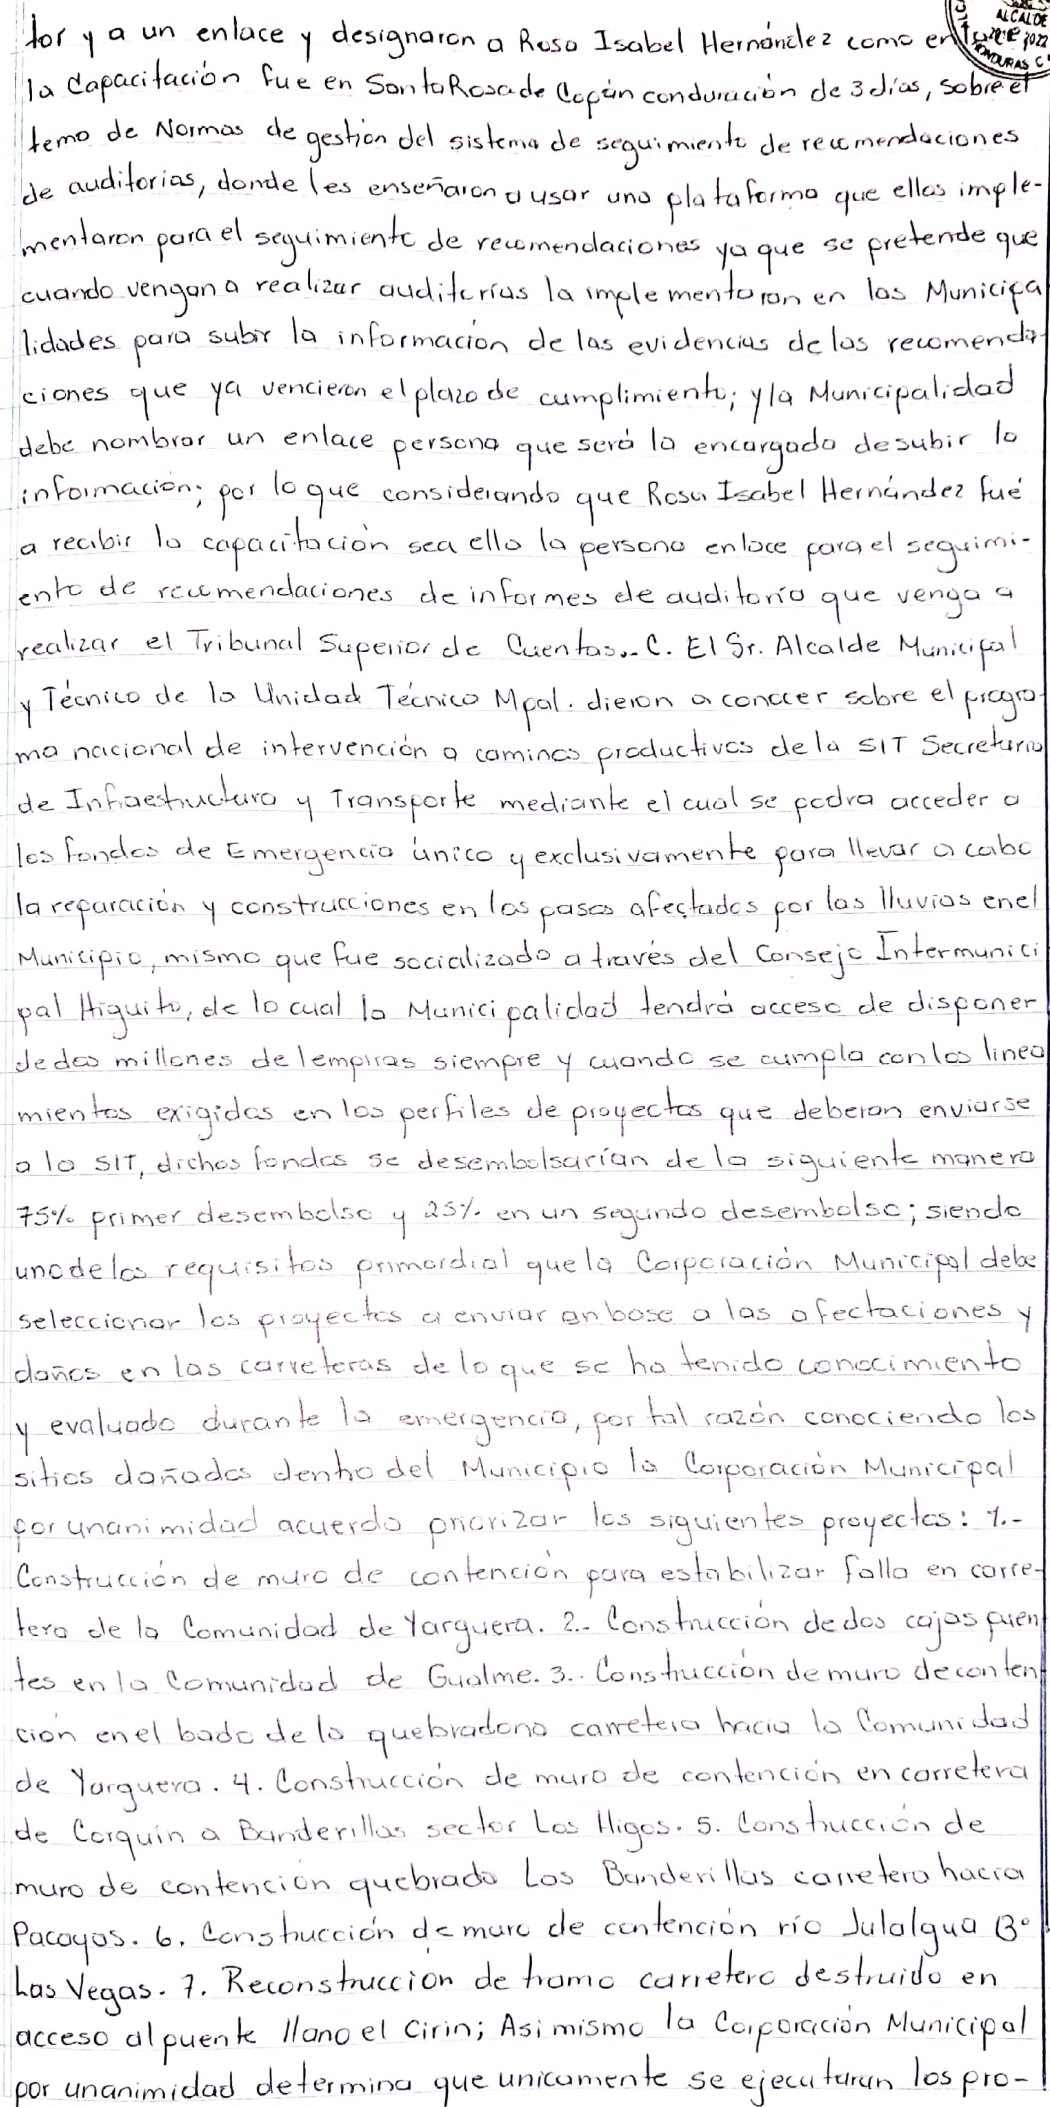 tor y a un enlace y designaron a Rosa Isabel Hernández como
ALCALDE
2022
HONDURAS C
la Capacitación fue en Santa Rosa de Copán con duración de 3 días, sobre el
tema de Normas de gestión del sistema de seguimiento de recomendaciones
de auditorias, donde les enseñaron a usar una plataforma que ellos imple-
mentaron para el seguimiento de recomendaciones ya que se pretende que
cuando vengan a realizar auditorías la implementaron en las Municipa
lidades para subir la información de las evidencias de las recomenda-
ciones que ya vencieron el plazo de cumplimiento; y la Municipalidad
debe nombrar un enlace persona que será la encargada de subir la
información; por lo que considerando que Rosa Isabel Hernández fué
a recibir la capacitación sea ella la persona enlace para el seguimi-
ento de recomendaciones de informes de auditoría que venga a
realizar el Tribunal Superior de Cuentas.- C. El Sr. Alcalde Municipal
y Técnico de la Unidad Técnico Mpal. dieron a conocer sobre el progra-
ma nacional de intervención a caminos productivos de la SIT Secretaria
de Infraestructura y Transporte mediante el cual se podra acceder a
los fondos de Emergencia único y exclusivamente para llevar a cabo
la reparación y construcciones en los pasos afectados por las lluvias en el
Municipio, mismo que fue socializado a través del Consejo Intermunici
pal Higuito, de lo cual la Municipalidad tendrá acceso de disponer
de dos millones de lempiras siempre y cuando se cumpla con los linea
mientos exigidos en los perfiles de proyectos que deberan enviarse
a la SIT, dichos fondos se desembolsarían de la siguiente manera
75% primer desembolso y 25% en un segundo desembolso; siendo
uno de los requisitos primordial que la Corporación Municipal debe
seleccionar los proyectos a enviar en base a las afectaciones y
daños en las carreteras de lo que se ha tenido conocimiento
y evaluado durante la emergencia, por tal razón conociendo los
sitios dañados dentro del Municipio la Corporación Municipal
por unanimidad acuerda priorizar los siguientes proyectos: 1.-
Construcción de muro de contención para estabilizar falla en carre-
tera de la Comunidad de Yarguera. 2.- Construcción de dos cajas puen
tes en la Comunidad de Gualme. 3.- Construcción de muro de conten
cion en el bado de la quebradona carretera hacia la Comunidad
de Yarguera. 4. Construcción de muro de contención en carretera
de Corquín a Banderillas sector Los Higos. 5. Construcción de
muro de contención quebrada Las Banderillas carretera hacia
Pacayas. 6. Construcción de muro de contención río Julalgua Bº
Las Vegas. 7. Reconstruccion de tramo carretero destruido en
acceso al puente llano el Cirin; Asimismo la Corporación Municipal
por unanimidad determina que unicamente se ejecutaran los pro-